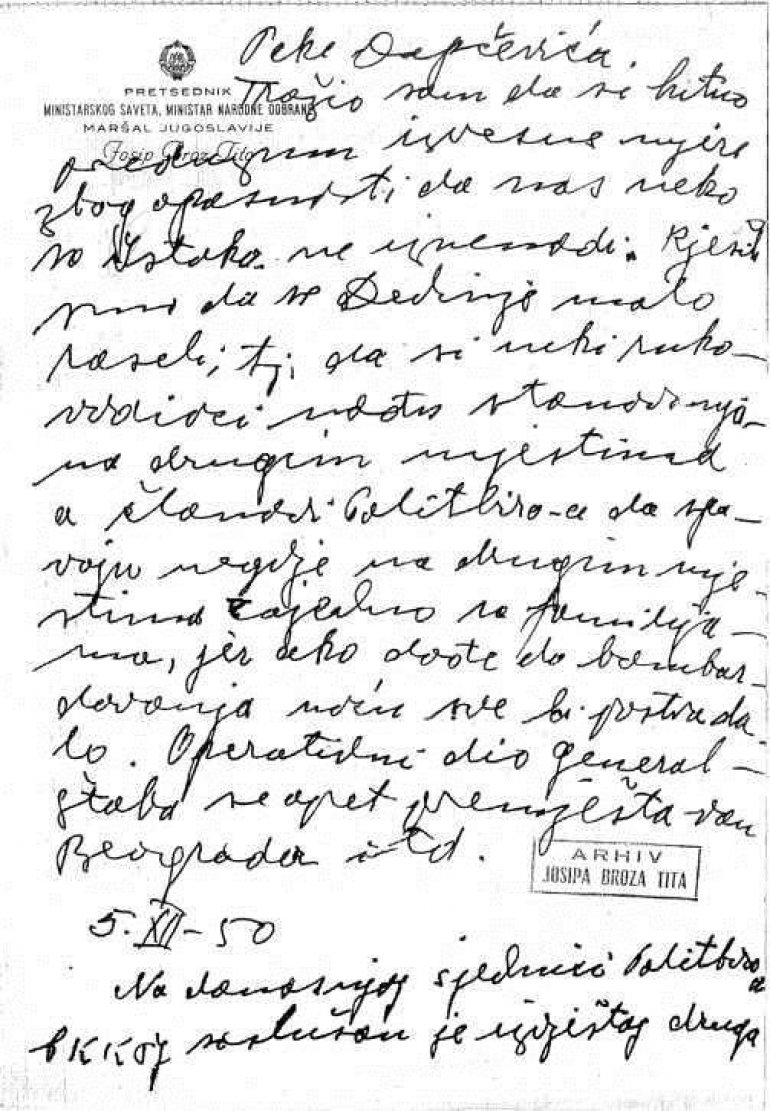 Peke Dapčevića.
PRETSEDNIK
MINISTARSKOG SAVETA, MINISTAR NARODNE ODBRANE
MARŠAL JUGOSLAVIJE
Josip Broz Tito
Tražio sam da se hitno
preduzmu izvesne mjere
zbog opasnosti da nas neko
sa Istoka ne iznenadi. Rješili
smo da se Dedinje malo
raseli, tj. da si neki ruko-
vodioci nađu stanovanja
na drugim mjestima
a članovi Politbiro-a da spa-
vaju negdje na drugim mje-
stima zajedno sa familija-
ma, jer ako dođe do bombar-
dovanja noću sve bi postrada-
lo. Operativni dio general-
štaba se opet premješta van
Beograda itd.
ARHIV
JOSIPA BROZA TITA
5.XII-50
Na današnjoj sjednici Politbiroa
CKKPJ saslušan je izvještaj druga